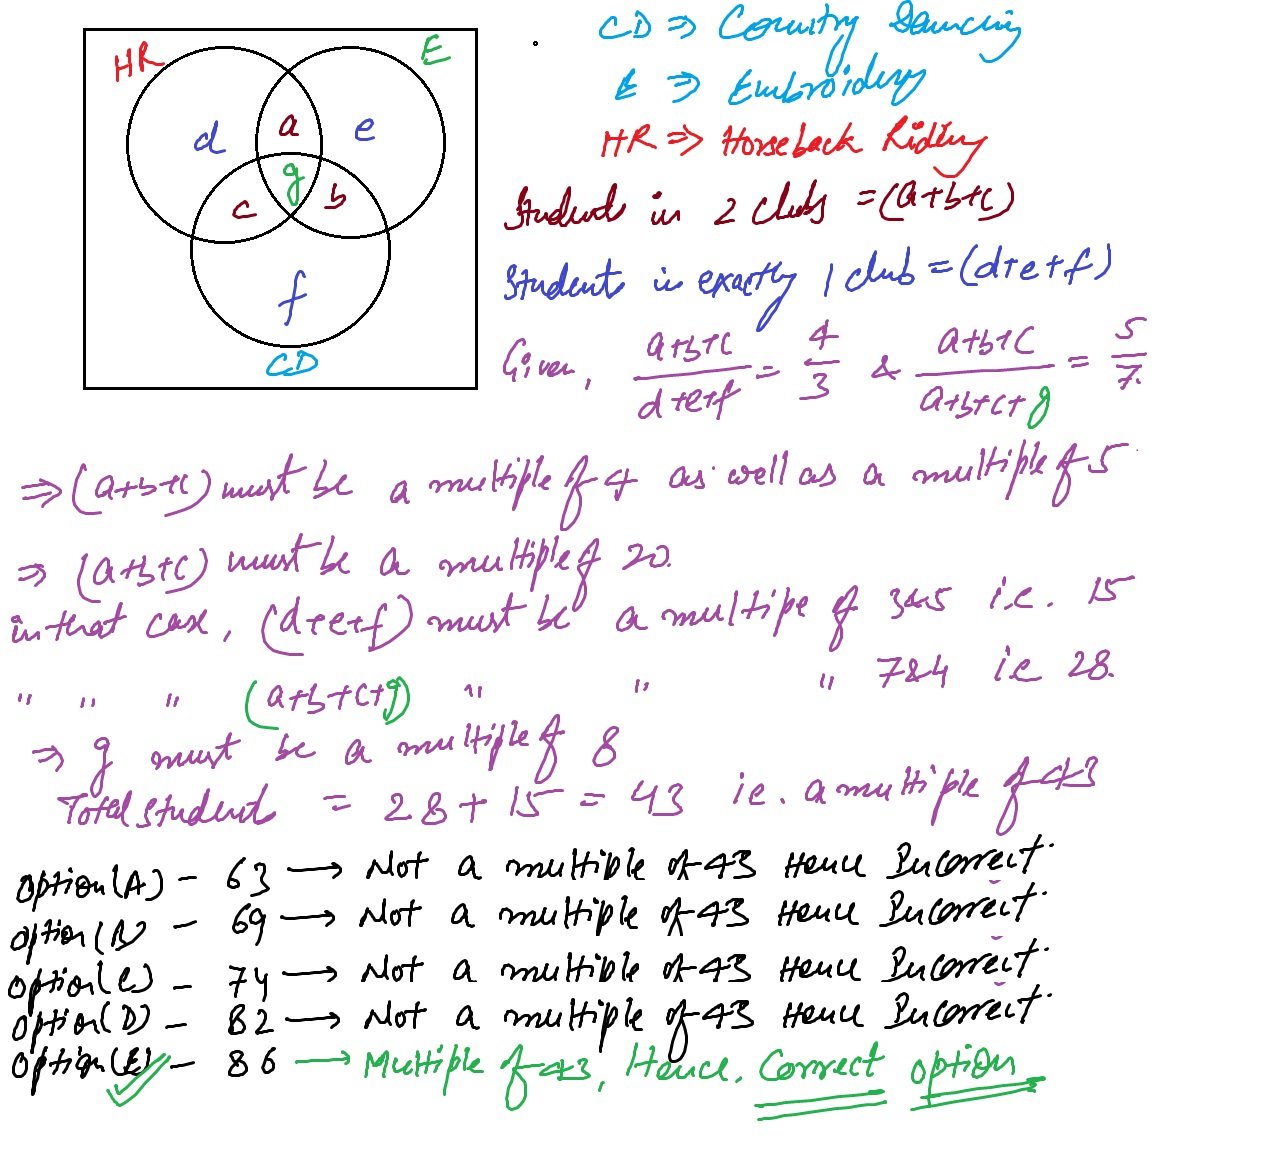 HR
E
d
a
e
g
c
b
f
CD
CD ⇒ Country Dancing
E ⇒ Embroidery
HR ⇒ Horseback Riding
Students in 2 clubs = (a+b+c)
Students in exactly 1 club = (d+e+f)
Given, (a+b+c)/(d+e+f) = 4/3 & (a+b+c)/(a+b+c+g) = 5/7.
⇒ (a+b+c) must be a multiple of 4 as well as a multiple of 5
⇒ (a+b+c) must be a multiple of 20.
in that case, (d+e+f) must be a multipe of 3&5 i.e. 15
" " " (a+b+c+g) " " " 7&4 i.e 28.
⇒ g must be a multiple of 8
Total students = 28 + 15 = 43 ie. a multiple of 43
Option(A) - 63 → Not a multiple of 43 Hence Incorrect.
Option(B) - 69 → Not a multiple of 43 Hence Incorrect.
Option(C) - 74 → Not a multiple of 43 Hence Incorrect.
Option(D) - 82 → Not a multiple of 43 Hence Incorrect.
Option(E) - 86 → Multiple of 43, Hence, Correct option